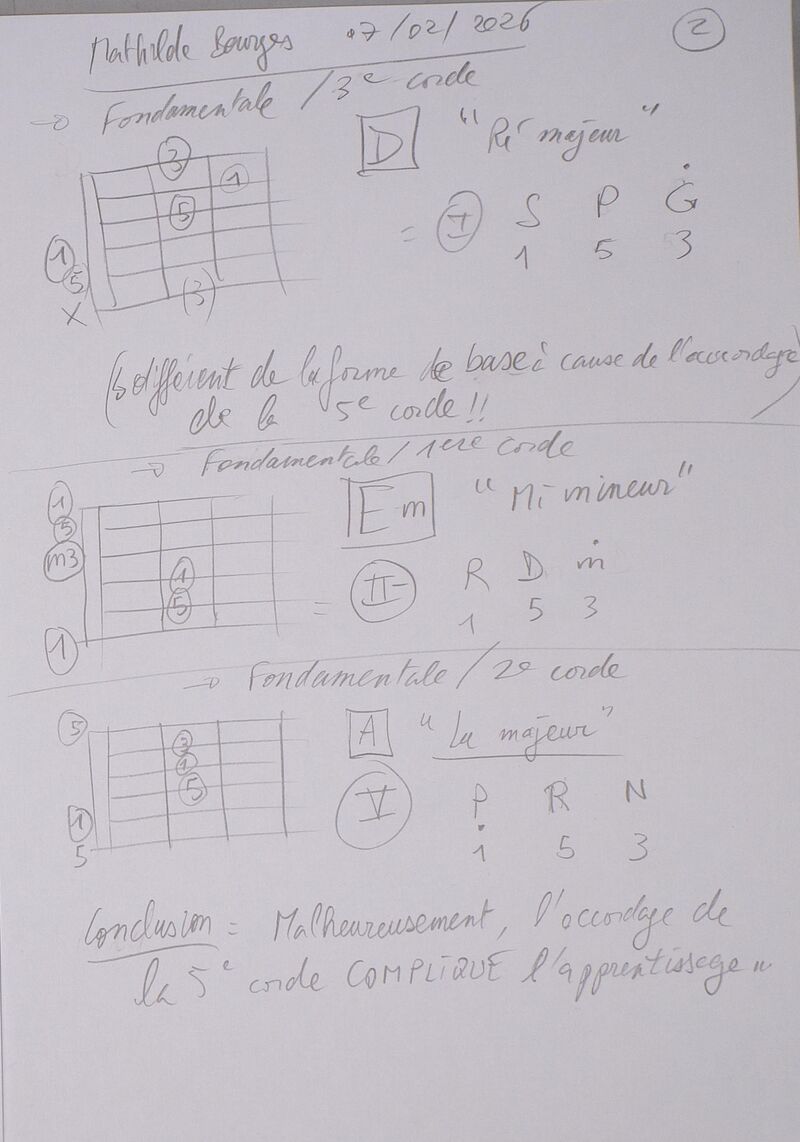 Mathilde Bourges 07/02/2026 2
→ Fondamentale / 3e corde
D "Ré majeur"
3
1
5
= I S P Ġ
1 5 3
1
5
X (3)
(↳ différent de la forme de base à cause de l'accordage
de la 5e corde !!
→ Fondamentale / 1ère corde
1
5
m3
Em "Mi mineur"
1
5
1
= II- R D ṁ
1 5 3
→ Fondamentale / 2e corde
5
A "La majeur"
3
1
5
1
5
V P R N
1 5 3
Conclusion = Malheureusement, l'accordage de
la 5e corde COMPLIQUE l'apprentissage